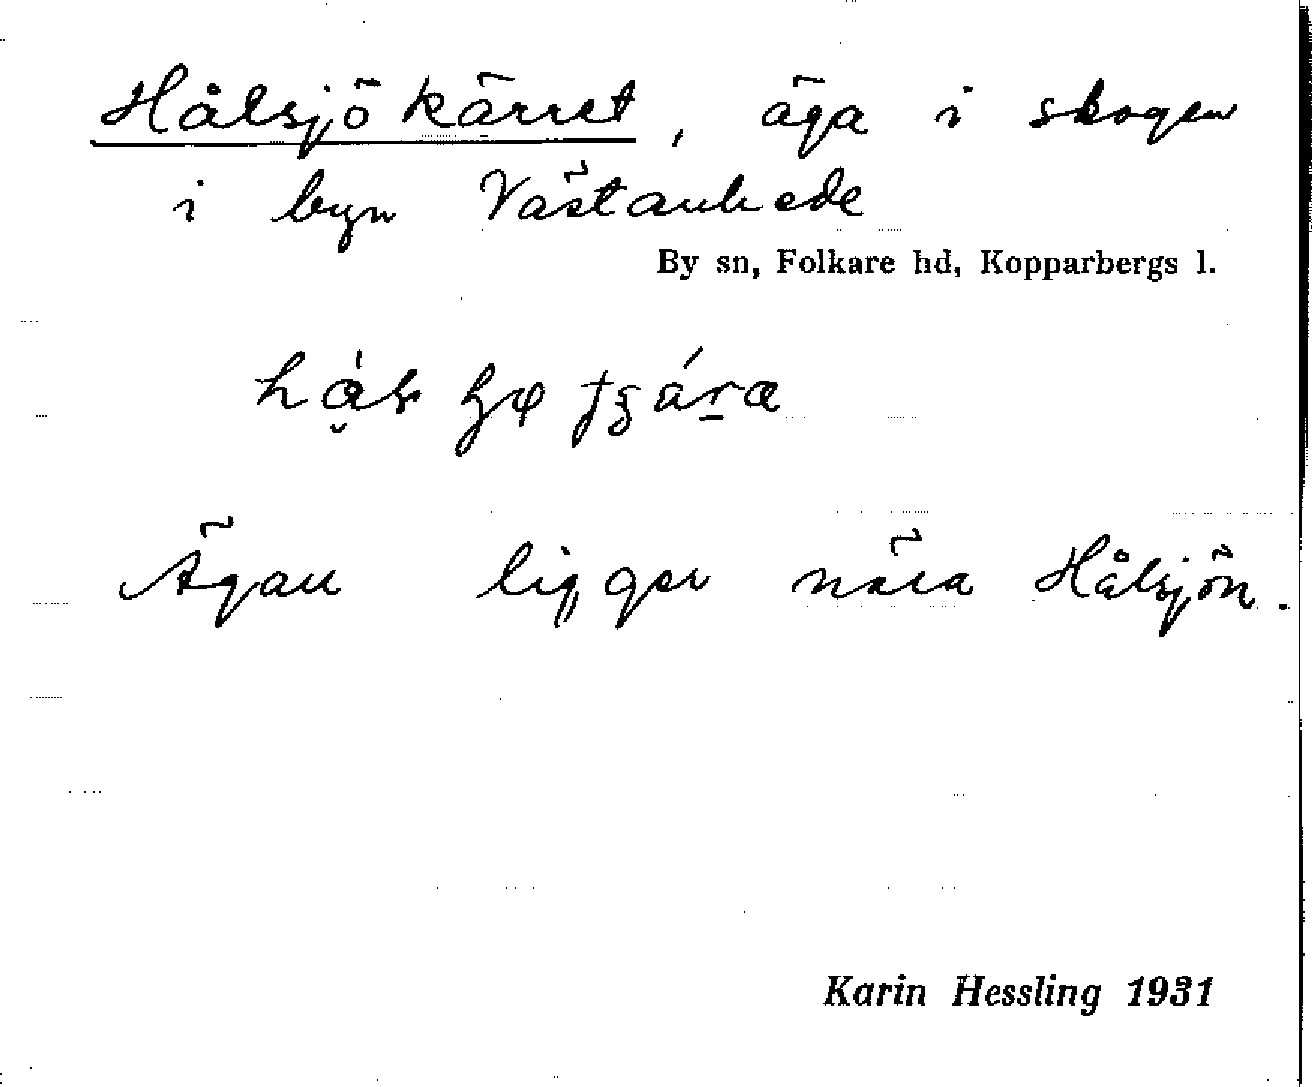 Hålsjökärret, äga i skogen
i byn Västanhede
By sn, Folkare hd, Kopparbergs l.
Ägan ligger nära Hålsjön.
Karin Hessling 1931